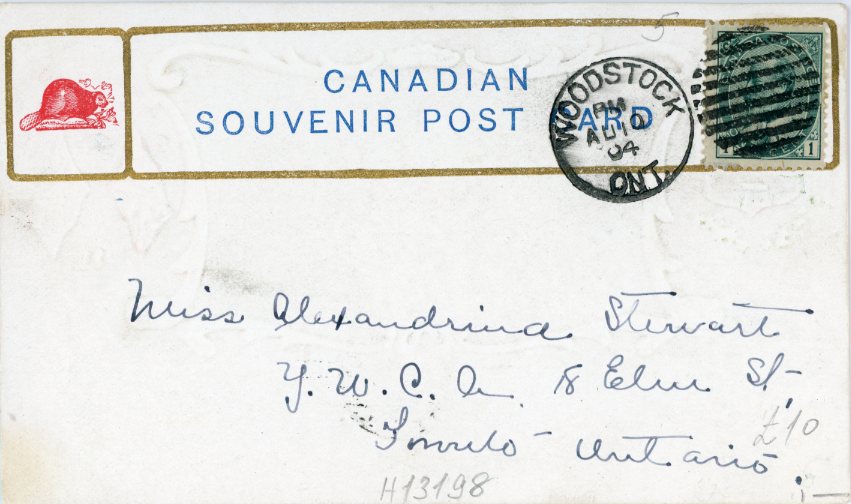 5
CANADIAN
SOUVENIR POST CARD
WOODSTOCK
PM
AU 10
04
ONT.
1
Miss Alexandrina Stewart
Y. W. C. A. 18 Elm St.
Toronto - Ontario
£10
H13198